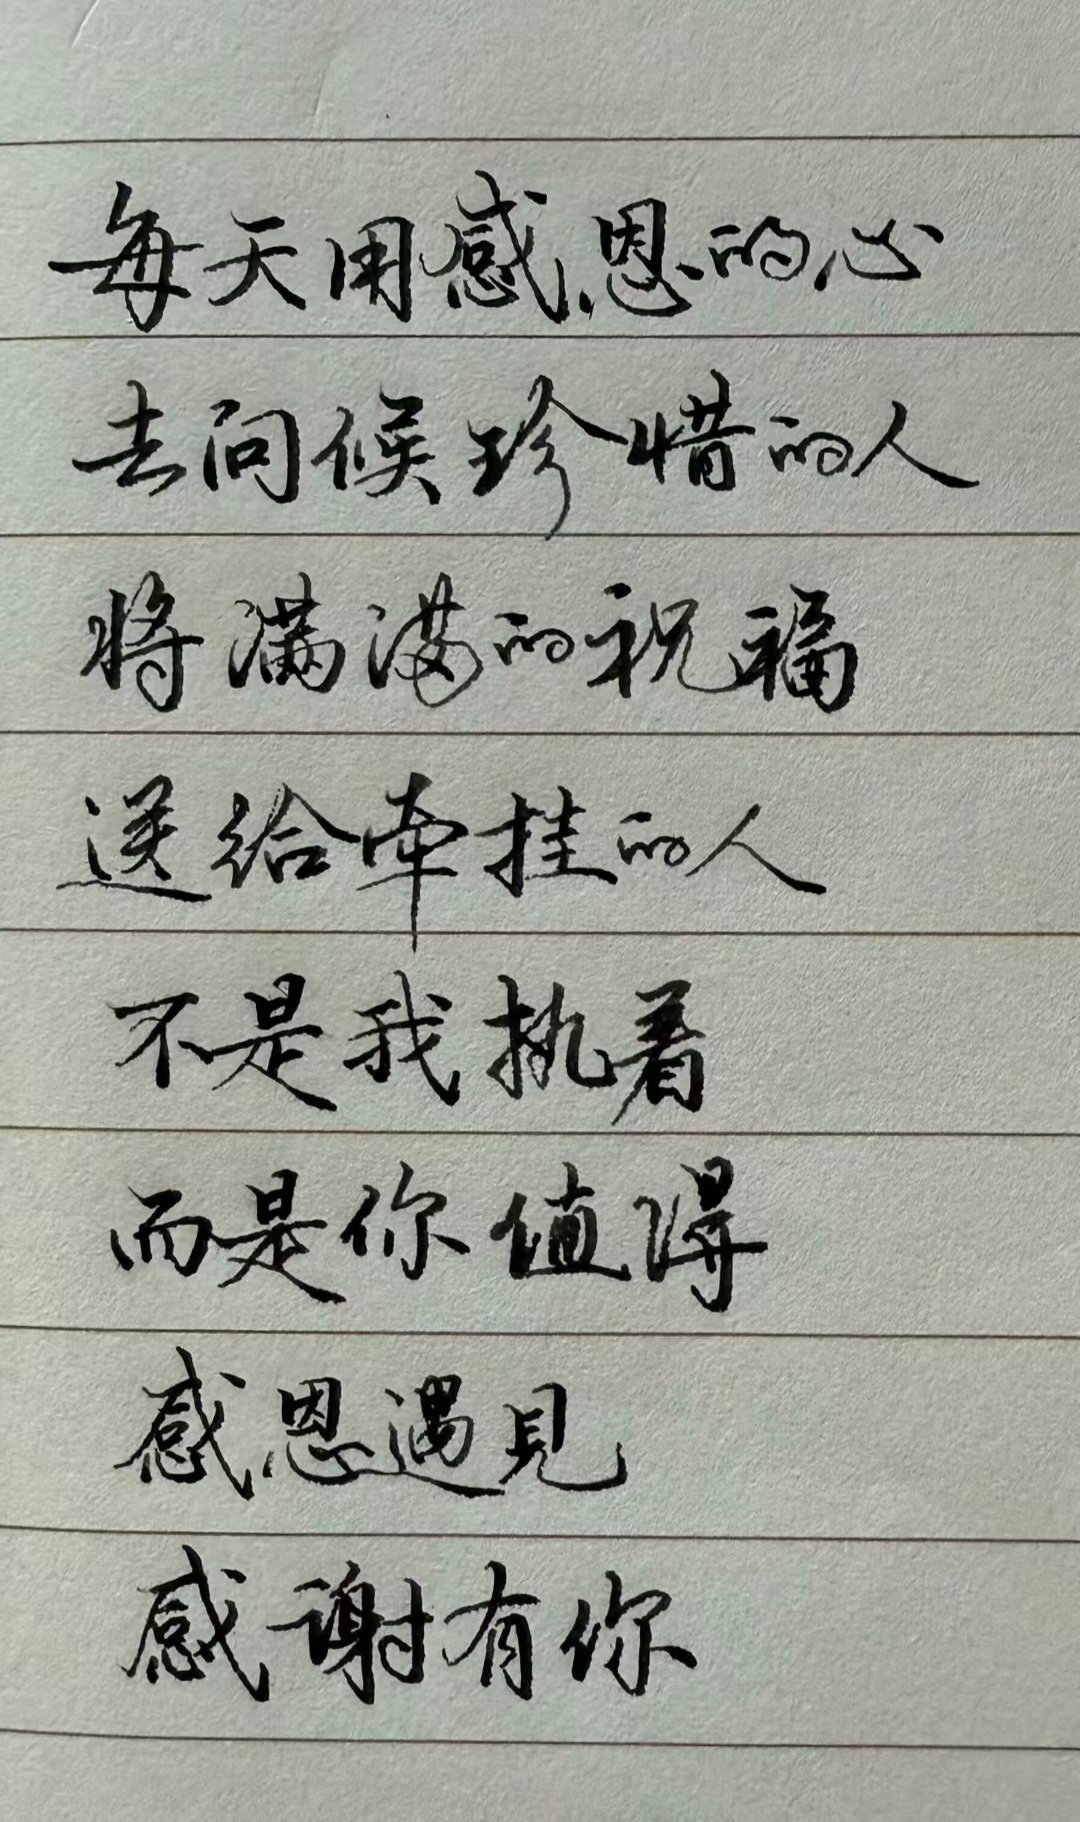 每天用感恩的心
去问候珍惜的人
将满满的祝福
送给牵挂的人
不是我执着
而是你值得
感恩遇見
感谢有你